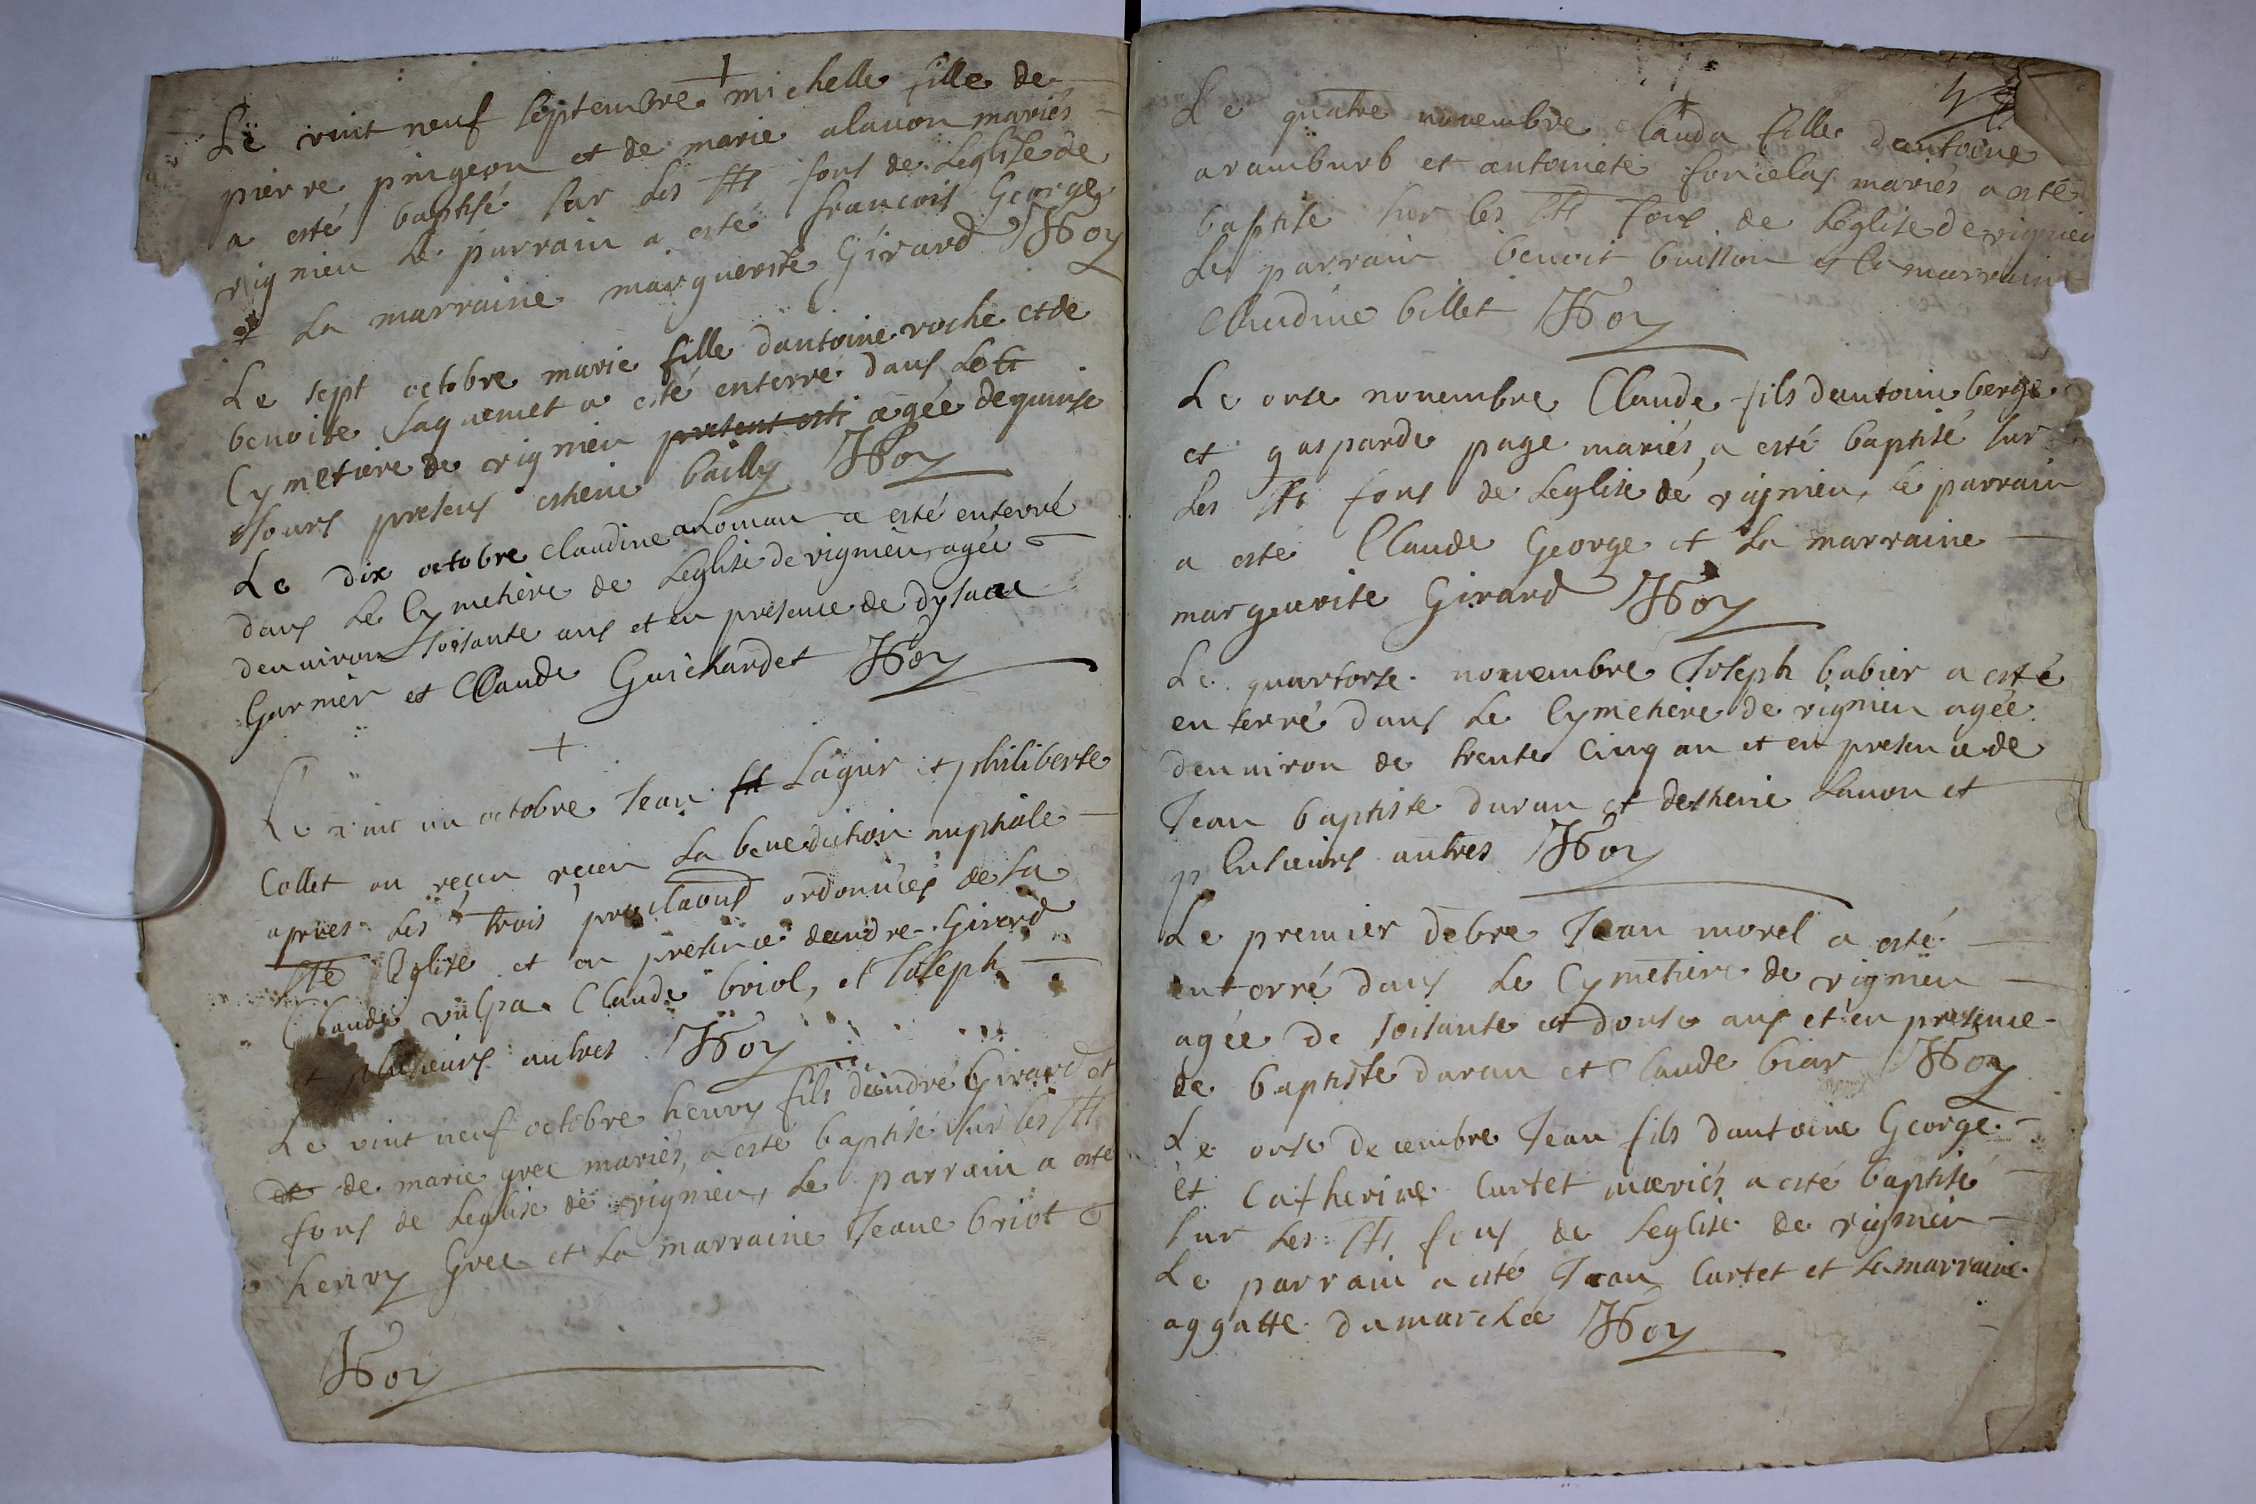 Le vint neuf septembre michelle fille de
pierre pingeon et de marie alauon mariés
a esté baptisé sur Les sts fons de Leglise de
rignieu Le parrain a esté francois George
et La marraine marguerite Girard JRoy
Le sept octobre marie fille dantoine roche et de
benoite saquemet a esté enterré dans Le
Cymetiere de rignieu present esti agée de quinse
Jours presens esthene bailly JRoy
Le dix octobre claudine a esté enterré
dans Le Cymetiere de Leglise de rignieu, agée
denuiron soisante ans et en presence de dysaac
Garnier et Claude Guichardet JRoy
Le vint un octobre Jean Lagier et philiberte
Collet on reçeu reçeu La benediction nuptiale
apries Les trois proclaons ordonnées de La
ste Eglise et en presence dandre Girard
Claude vulpa Claude briol, et Joseph
et plusieurs autres JRoy
Le vint neuf octobre henry fils dandré Girard et
de de marie grec mariés, a esté baptisé sur les sts
fons de Leglise de rignieu, Le parrain a esté
henry Grec et La marraine Jeane briot
JRoy
4
Le quatre nouembre Clauda fille dantoine
aramburb et antoinete foncelas mariés a esté
baptise sur les sts fons de Leglise de rignieu
Le parrain benoit buisson et La marraine
Claudine billet JRoy
Le onse nouembre Claude fils dantoine berge
et gasparde page mariés, a esté baptisé sur
Les sts fons de Leglise de rignieu, Le parrain
a esté Claude George et La marraine
marguerite Girard JRoy
Le quartorse nouembre Joseph babier a esté
enterré dans Le Cymetiere de rignieu agée
denuiron de trente Cinq an et en presence de
Jean baptiste duran et desthene Lauon et
plusieurs autres JRoy
Le premier debre Jean morel a esté
enterré dans Le Cymetiere de rignieu
agée de soisante et douse ans et en presence
de baptiste duran et Claude biar JRoy
Le onse decembre Jean fils dantoine George
et Catherine Curtet mariés a esté baptisé
sur Les sts fons de Leglise de rignieu
Le parrain a esté Jean Curtet et La marraine
aggatte dumarchee JRoy